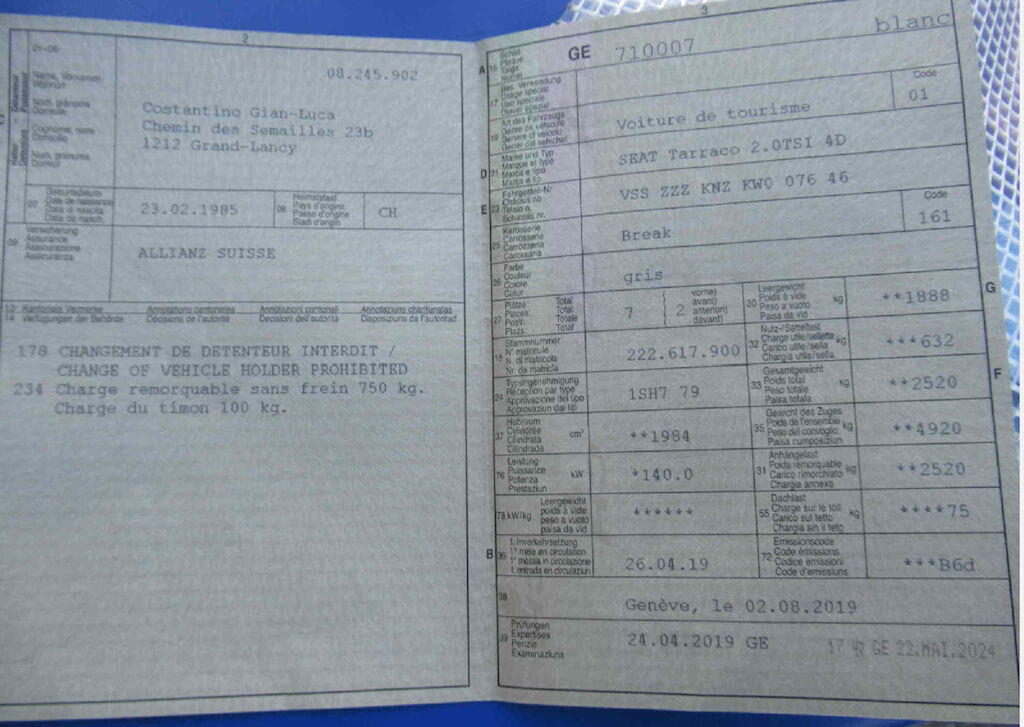 2
01-06
08.245.902
Name, Vornamen
Wohnort
Nom, prénoms
Domicile
Cognome, nomi
Domicilio
Num, prenums
Domicil
Costantino Gian-Luca
Chemin des Semailles 23b
1212 Grand-Lancy
07
Geburtsdatum
Date de naissance
Data di nascita
Data da nasch.
23.02.1985
08
Heimatstaat
Pays d'origine
Paese d'origine
Stadi d'origin
CH
09
Versicherung
Assurance
Assicurazione
Assicuranza
ALLIANZ SUISSE
13 Kantonale Vermerke
14 Verfügungen der Behörde
Annotations cantonales
Décisions de l'autorité
Annotazioni cantonali
Decisioni dell'autorità
Annotaziuns chantunalas
Disposiziuns da l'autoritad
178 CHANGEMENT DE DETENTEUR INTERDIT /
CHANGE OF VEHICLE HOLDER PROHIBITED
234 Charge remorquable sans frein 750 kg.
Charge du timon 100 kg.
3
A 15
Schild
Plaque
Targa
Numer
GE 710007
blanc
17
Bes. Verwendung
Usage spécial
Uso speciale
Diever spezial
19
Art des Fahrzeugs
Genre de véhicule
Genere di veicolo
Gener dal vehichel
Voiture de tourisme
Code
01
D 21
Marke und Typ
Marque et type
Marca e tipo
Marca e tip
SEAT Tarraco 2.0TSI 4D
E 23
Fahrgestell-Nr.
Châssis no
Telaio n.
Schassis nr.
VSS ZZZ KNZ KW0 076 46
25
Karosserie
Carrosserie
Carrozzeria
Carossaria
Break
Code
161
26
Farbe
Couleur
Colore
Colur
gris
27
Plätze: Total
Places: Total
Posti: Totale
Plazs: Total
7
2
vorne)
avant)
anteriori)
davant)
G
30
Leergewicht
Poids à vide
Peso a vuoto
Paisa da vid
kg
**1888
18
Stammnummer
N° matricule
N. di matricola
Nr. da matricla
222.617.900
32
Nutz-/Sattellast
Charge utile/sellette
Carico utile/sella
Chargia utila/sella
kg
***632
24
Typengenehmigung
Réception par type
Approvazione del tipo
Approvaziun dal tip
1SH7 79
F
33
Gesamtgewicht
Poids total
Peso totale
Paisa totala
kg
**2520
37
Hubraum
Cylindrée
Cilindrata
Cilindrada
cm³
**1984
35
Gewicht des Zuges
Poids de l'ensemble
Peso del convoglio
Paisa cumposiziun
kg
**4920
76
Leistung
Puissance
Potenza
Prestaziun
kW
*140.0
31
Anhängelast
Poids remorquable
Carico rimorchiato
Chargia annexa
kg
**2520
78 kW/kg
Leergewicht
poids à vide
peso a vuoto
paisa da vid
******
55
Dachlast
Charge sur le toit
Carico sul tetto
Chargia sin il tetg
kg
****75
B 36
1. Inverkehrsetzung
1re mise en circulation
1a messa in circolazione
1. entrada en circulaziun
26.04.19
72
Emissionscode
Code émissions
Codice emissioni
Code d'emissiuns
***B6d
38
Genève, le 02.08.2019
39
Prüfungen
Expertises
Perizie
Examinaziuns
24.04.2019 GE
17 GE 22.MAI.2024